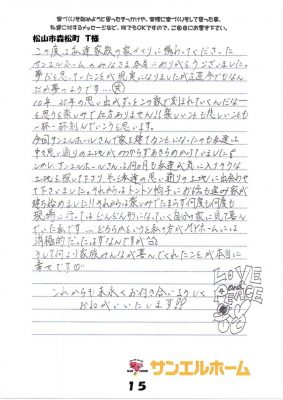 家づくりを始めようと思ったきっかけや、実際に家づくりをして思った事、
私達に対するメッセージなど、何でもOKですので、ご自由にお書き下さい。
松山市森松町 T様
この度は私達家族の家づくりに携わってくださった
サンエルホームのみなさま本当にありがとうございました。
夢だと思っていたことが現実になりましたが正直今でもなんだ
か夢のようです…
10年、20年の思い出がずっとこの家で刻まれていくんだな…
と思うと楽しみでたまりません!!楽しい思いも悲しい思いも
一杯一杯刻んでいこうと思います。
今回サンエルホームさんで家を建てることになったのも私達は
中々思い通りの土地がみつからずあきらめかけていました。
しかしサンエルホームさんは何ヶ月も私達が気に入りそうな
土地を探して下さり、そして私達の思い通りの土地に出会わせ
て下さいました。それからはトントン拍子にお話も進み家が
建ち始めました!!それからは楽しみでたまらず何度も何度も
現場に行ってはどんどん形になっていく自分の家に見て喜んで
いた私です…どちらかというと私の方がマイホームには
消極的だったはずなんですが
そして何より家族みんなが喜んでくれたことが本当に
幸せです
これからも末永くお付き合いよろしく
おねがいいたします!!
LOVE
and
PEACE
サンエルホーム
15